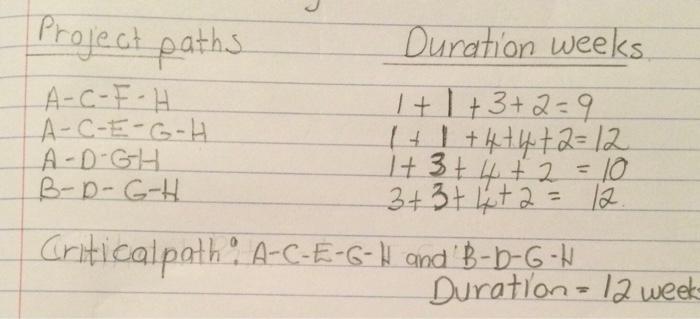 Project paths Duration weeks
A-C-F-H 1+1+3+2=9
A-C-E-G-H 1+1+4+4+2=12
A-D-G-H 1+3+4+2=10
B-D-G-H 3+3+4+2= 12.
Critical path: A-C-E-G-H and B-D-G-H
Duration = 12 week